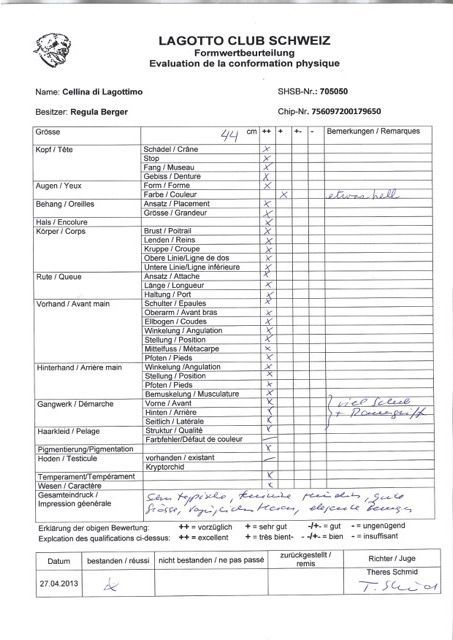 LAGOTTO CLUB SCHWEIZ
Formwertbeurteilung
Evaluation de la conformation physique
Name: Cellina di Lagottimo SHSB-Nr.: 705050
Besitzer: Regula Berger Chip-Nr.: 756097200179650
Grösse 44 cm ++ + +- - Bemerkungen / Remarques
Kopf / Tête Schädel / Crâne x
Stop x
Fang / Museau x
Gebiss / Denture x
Augen / Yeux Form / Forme x
Farbe / Couleur x etwas hell
Behang / Oreilles Ansatz / Placement x
Grösse / Grandeur x
Hals / Encolure x
Körper / Corps Brust / Poitrail x
Lenden / Reins x
Kruppe / Croupe x
Obere Linie/Ligne de dos x
Untere Linie/Ligne inférieure x
Rute / Queue Ansatz / Attache x
Länge / Longueur x
Haltung / Port x
Vorhand / Avant main Schulter / Epaules x
Oberarm / Avant bras x
Ellbogen / Coudes x
Winkelung / Angulation x
Stellung / Position x
Mittelfuss / Métacarpe x
Pfoten / Pieds x
Hinterhand / Arrière main Winkelung /Angulation x
Stellung / Position x
Pfoten / Pieds x
Bemuskelung / Musculature x
Gangwerk / Démarche Vorne / Avant x viel Schub
Hinten / Arrière x + Raumgriff
Seitlich / Latérale x
Haarkleid / Pelage Struktur / Qualité x
Farbfehler/Défaut de couleur –
Pigmentierung/Pigmentation x
Hoden / Testicule vorhanden / existant –
Kryptorchid
Temperament/Tempérament x
Wesen / Caractère x
Gesamteindruck /
Impression géenérale
Sehr typische, feminine Hündin, gute
Grösse, elegante
Erklärung der obigen Bewertung: ++ = vorzüglich + = sehr gut -/+- = gut - = ungenügend
Explcation des qualifications ci-dessus: ++ = excellent + = très bient- - -/+- = bien - = insuffisant
Datum bestanden / réussi nicht bestanden / ne pas passé zurückgestellt / remis Richter / Juge
27.04.2013 x Theres Schmid
T. Schmid